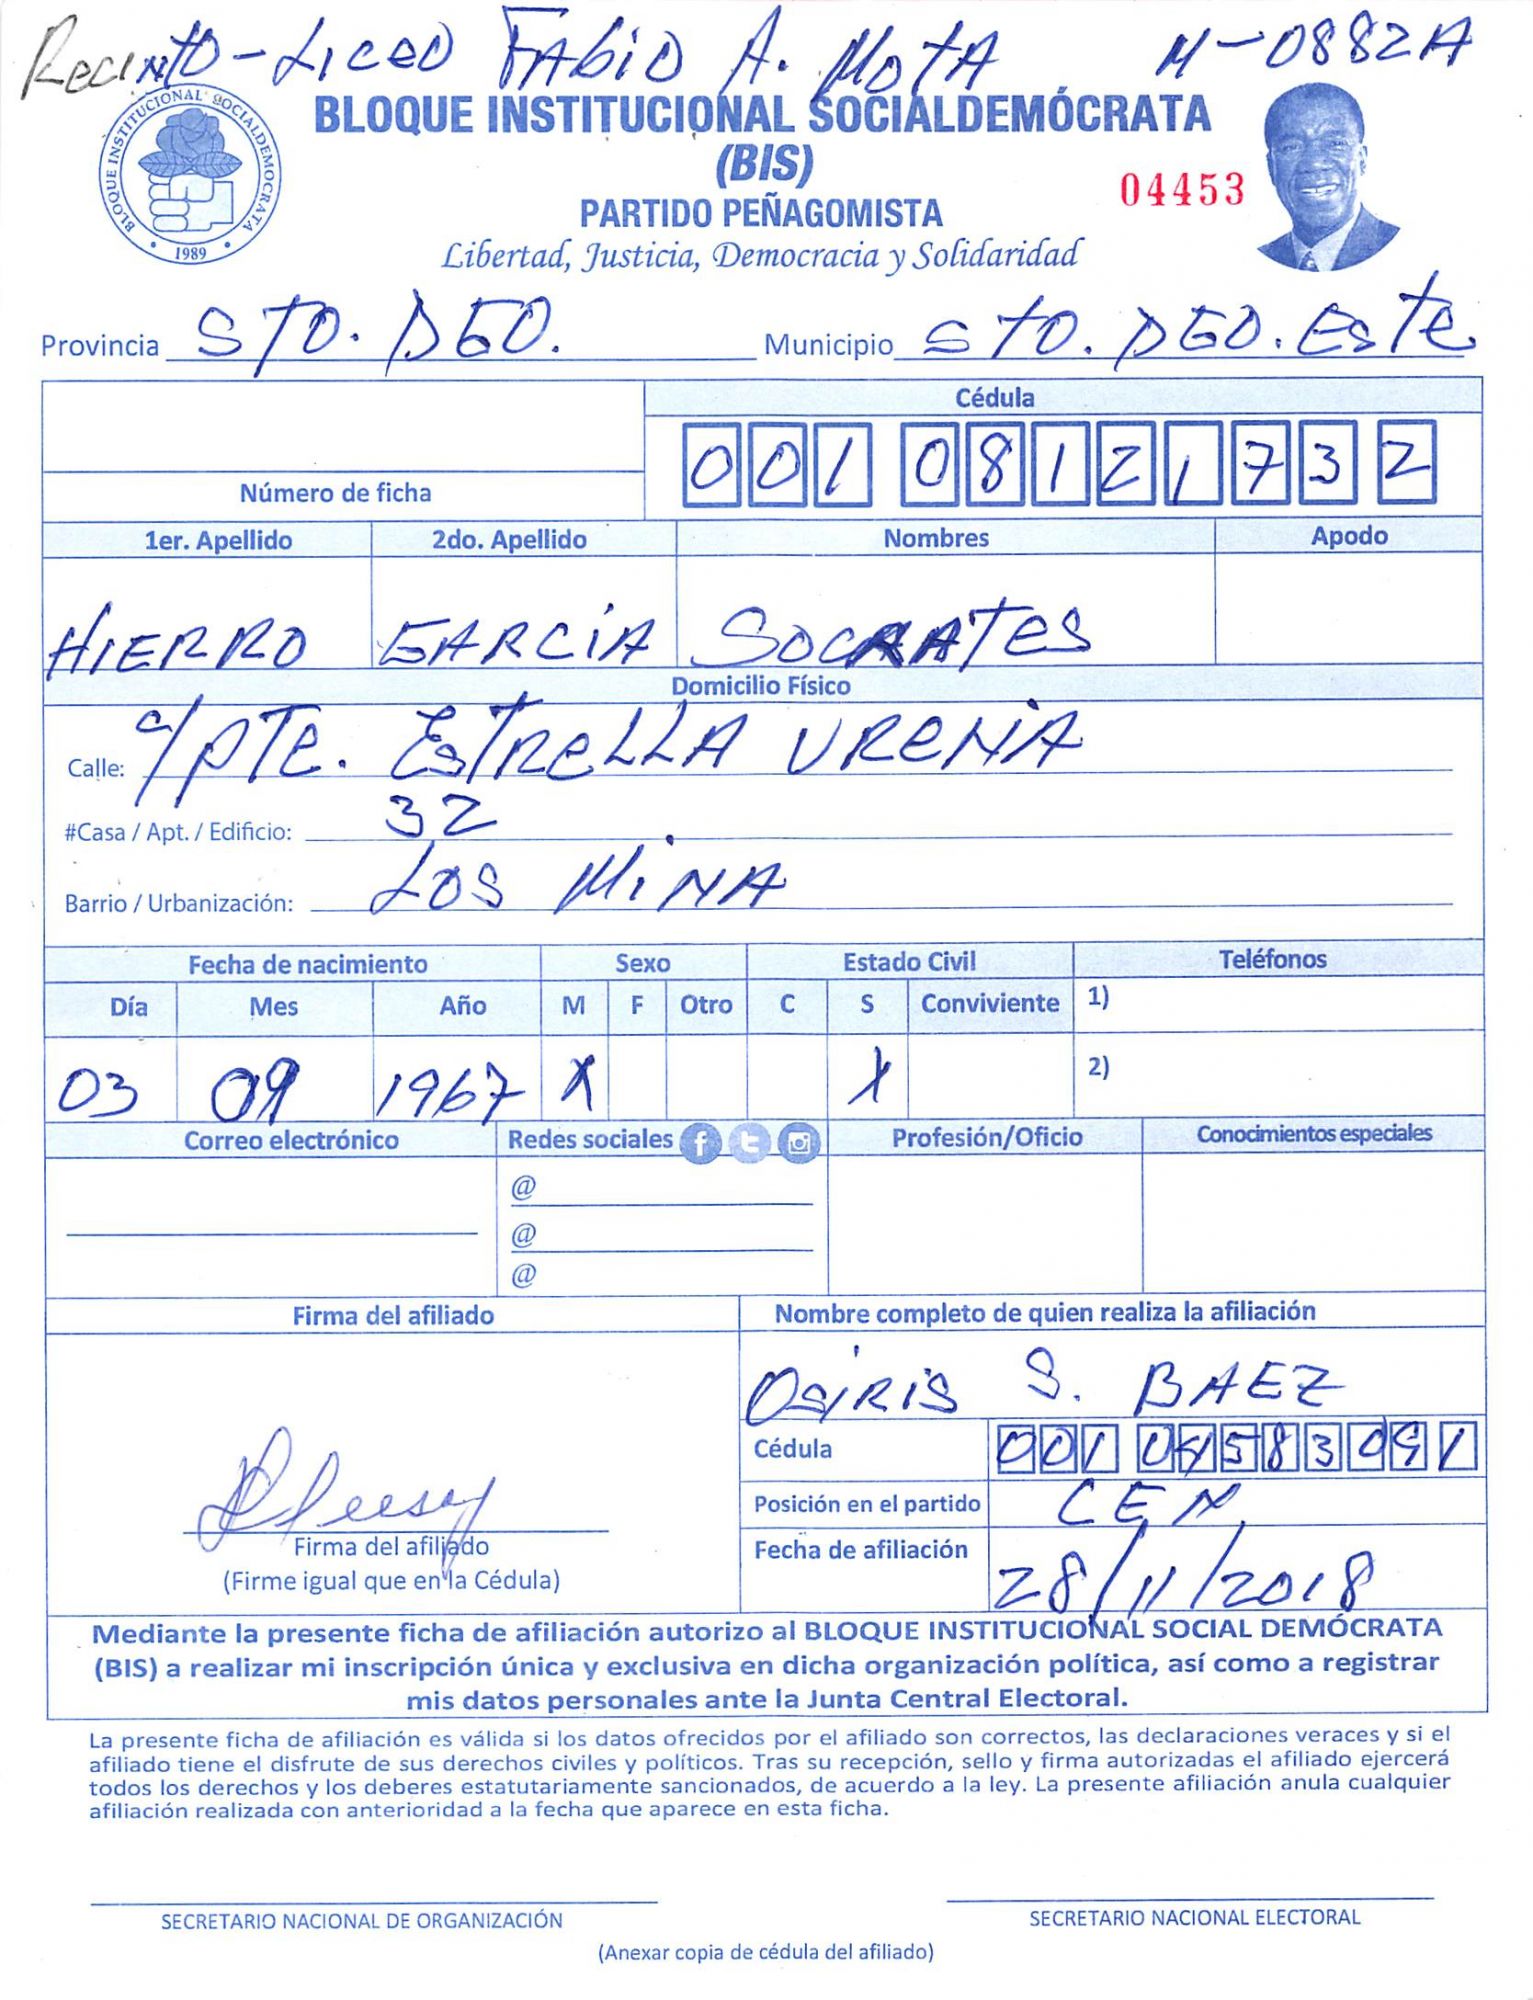 Recinto - Liceo Fabio A. Mota M-0882A
BLOQUE INSTITUCIONAL SOCIALDEMÓCRATA
(BIS)
PARTIDO PEÑAGOMISTA
Libertad, Justicia, Democracia y Solidaridad
04453
BLOQUE INSTITUCIONAL SOCIALDEMOCRATA
1989
Provincia STO. DGO. Municipio STO. DGO. Este
Cédula
001 08121732
Número de ficha
1er. Apellido 2do. Apellido Nombres Apodo
HIERRO GARCIA SOCRATES
Domicilio Físico
Calle: c/ PTE. ESTRELLA URENA
#Casa / Apt. / Edificio: 32
Barrio / Urbanización: LOS MINA
Fecha de nacimiento Sexo Estado Civil Teléfonos
Día Mes Año M F Otro C S Conviviente 1)
03 09 1967 X X 2)
Correo electrónico Redes sociales Profesión/Oficio Conocimientos especiales
@
@
@
Firma del afiliado Nombre completo de quien realiza la afiliación
OSIRIS S. BAEZ
Cédula 001 04583091
Posición en el partido CEN
Fecha de afiliación 28/11/2018
Firma del afiliado
(Firme igual que en la Cédula)
Mediante la presente ficha de afiliación autorizo al BLOQUE INSTITUCIONAL SOCIAL DEMÓCRATA
(BIS) a realizar mi inscripción única y exclusiva en dicha organización política, así como a registrar
mis datos personales ante la Junta Central Electoral.
La presente ficha de afiliación es válida si los datos ofrecidos por el afiliado son correctos, las declaraciones veraces y si el
afiliado tiene el disfrute de sus derechos civiles y políticos. Tras su recepción, sello y firma autorizadas el afiliado ejercerá
todos los derechos y los deberes estatutariamente sancionados, de acuerdo a la ley. La presente afiliación anula cualquier
afiliación realizada con anterioridad a la fecha que aparece en esta ficha.
SECRETARIO NACIONAL DE ORGANIZACIÓN SECRETARIO NACIONAL ELECTORAL
(Anexar copia de cédula del afiliado)